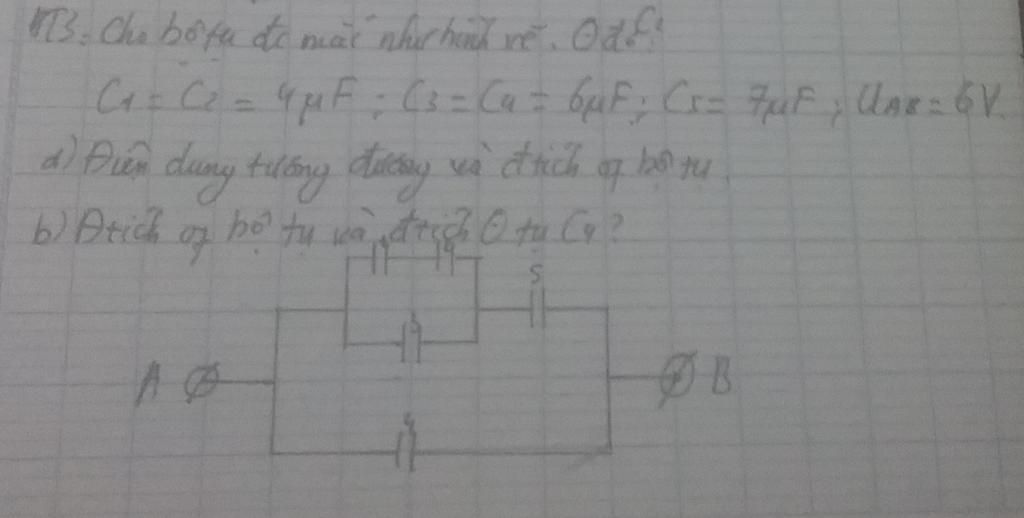 Cho bộ tụ đc mắc như hình vẽ. Ở đó:
C1 = C2 = 4μF; C3 = C4 = 6μF; C5 = 7μF; UAB = 6V.
a) Điện dung tương đương và đtích of bộ tụ.
b) Đtích of bộ tụ và đtích Ө tụ C4?
5
A B